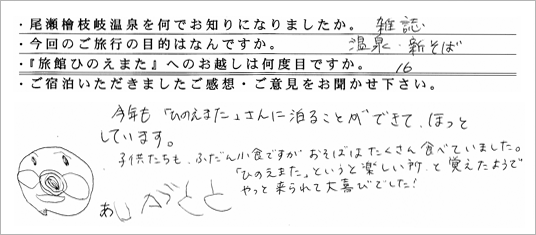 ・尾瀬檜枝岐温泉を何でお知りになりましたか。 雑誌
・今回のご旅行の目的はなんですか。 温泉・新そば
・『旅館ひのえまた』へのお越しは何度目ですか。 16
・ご宿泊いただきましたご感想・ご意見をお聞かせ下さい。
今年も「ひのえまた」さんに泊ることができて、ほっと
しています。
子供たちも、ふだん小食ですが おそばはたくさん食べていました。
「ひのえまた」というと楽しい所、と覚えたようで
やっと来られて大喜びでした!
あ